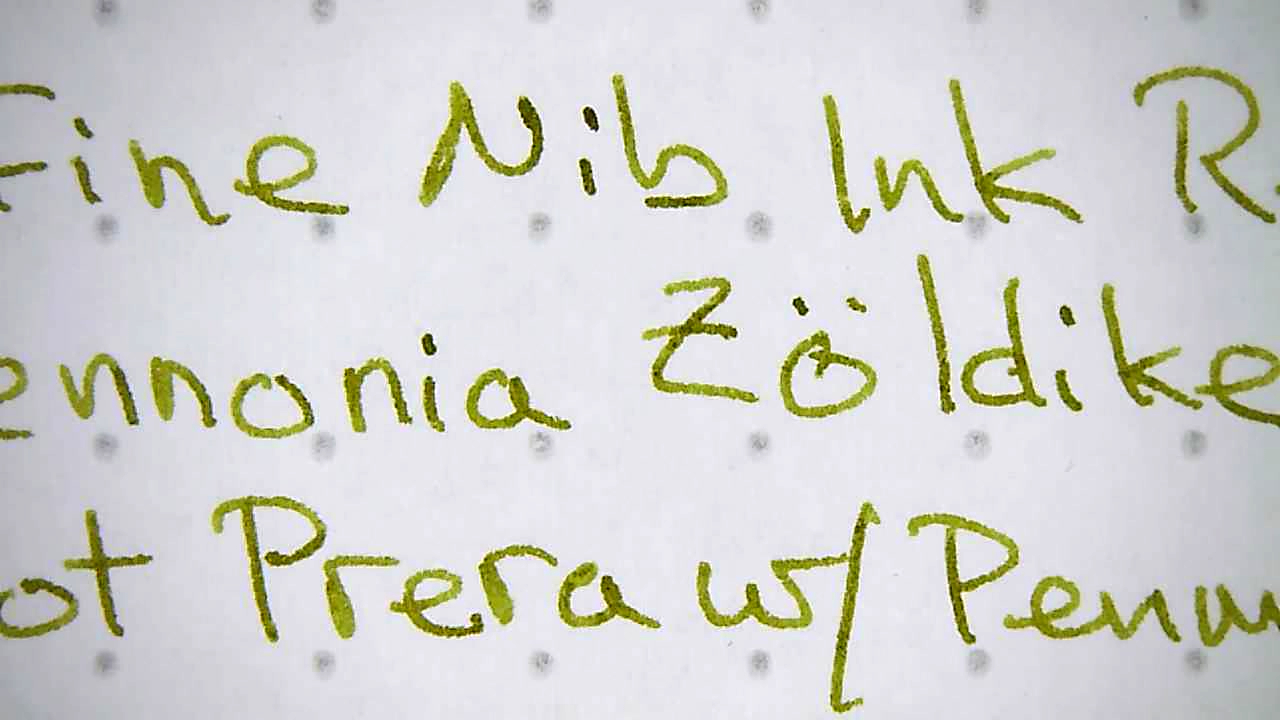 Fine Nib Ink R
ennonia Zöldike
ot Prera w/ Penn